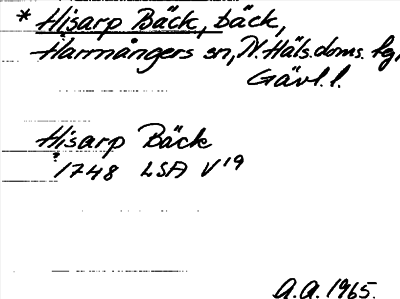 * Hisarp Bäck, bäck,
Harmångers sn, N. Häls. doms. hg,
Gävl. l.
Hisarp Bäck
1748 LSA V19
A.A. 1965.